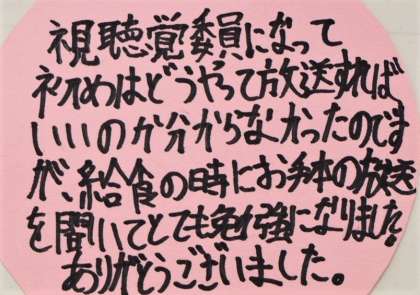 視聴覚委員になって
初めはどうやって放送すれば
いいのか分からなかったのです
が、給食の時にお手本の放送
を聞いてとても勉強になりました。
ありがとうございました。